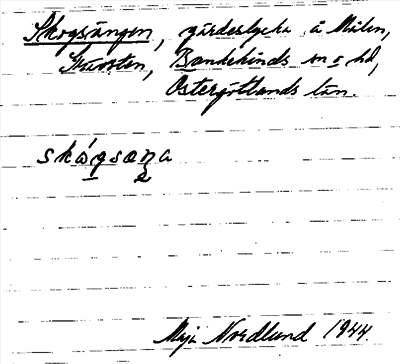 Skogsängen, gärdeslycka å Målen,
Skärsten, Bankekinds sn o hd,
Östergötlands län.
skógsæŋa
Maja Nordlund 1944.